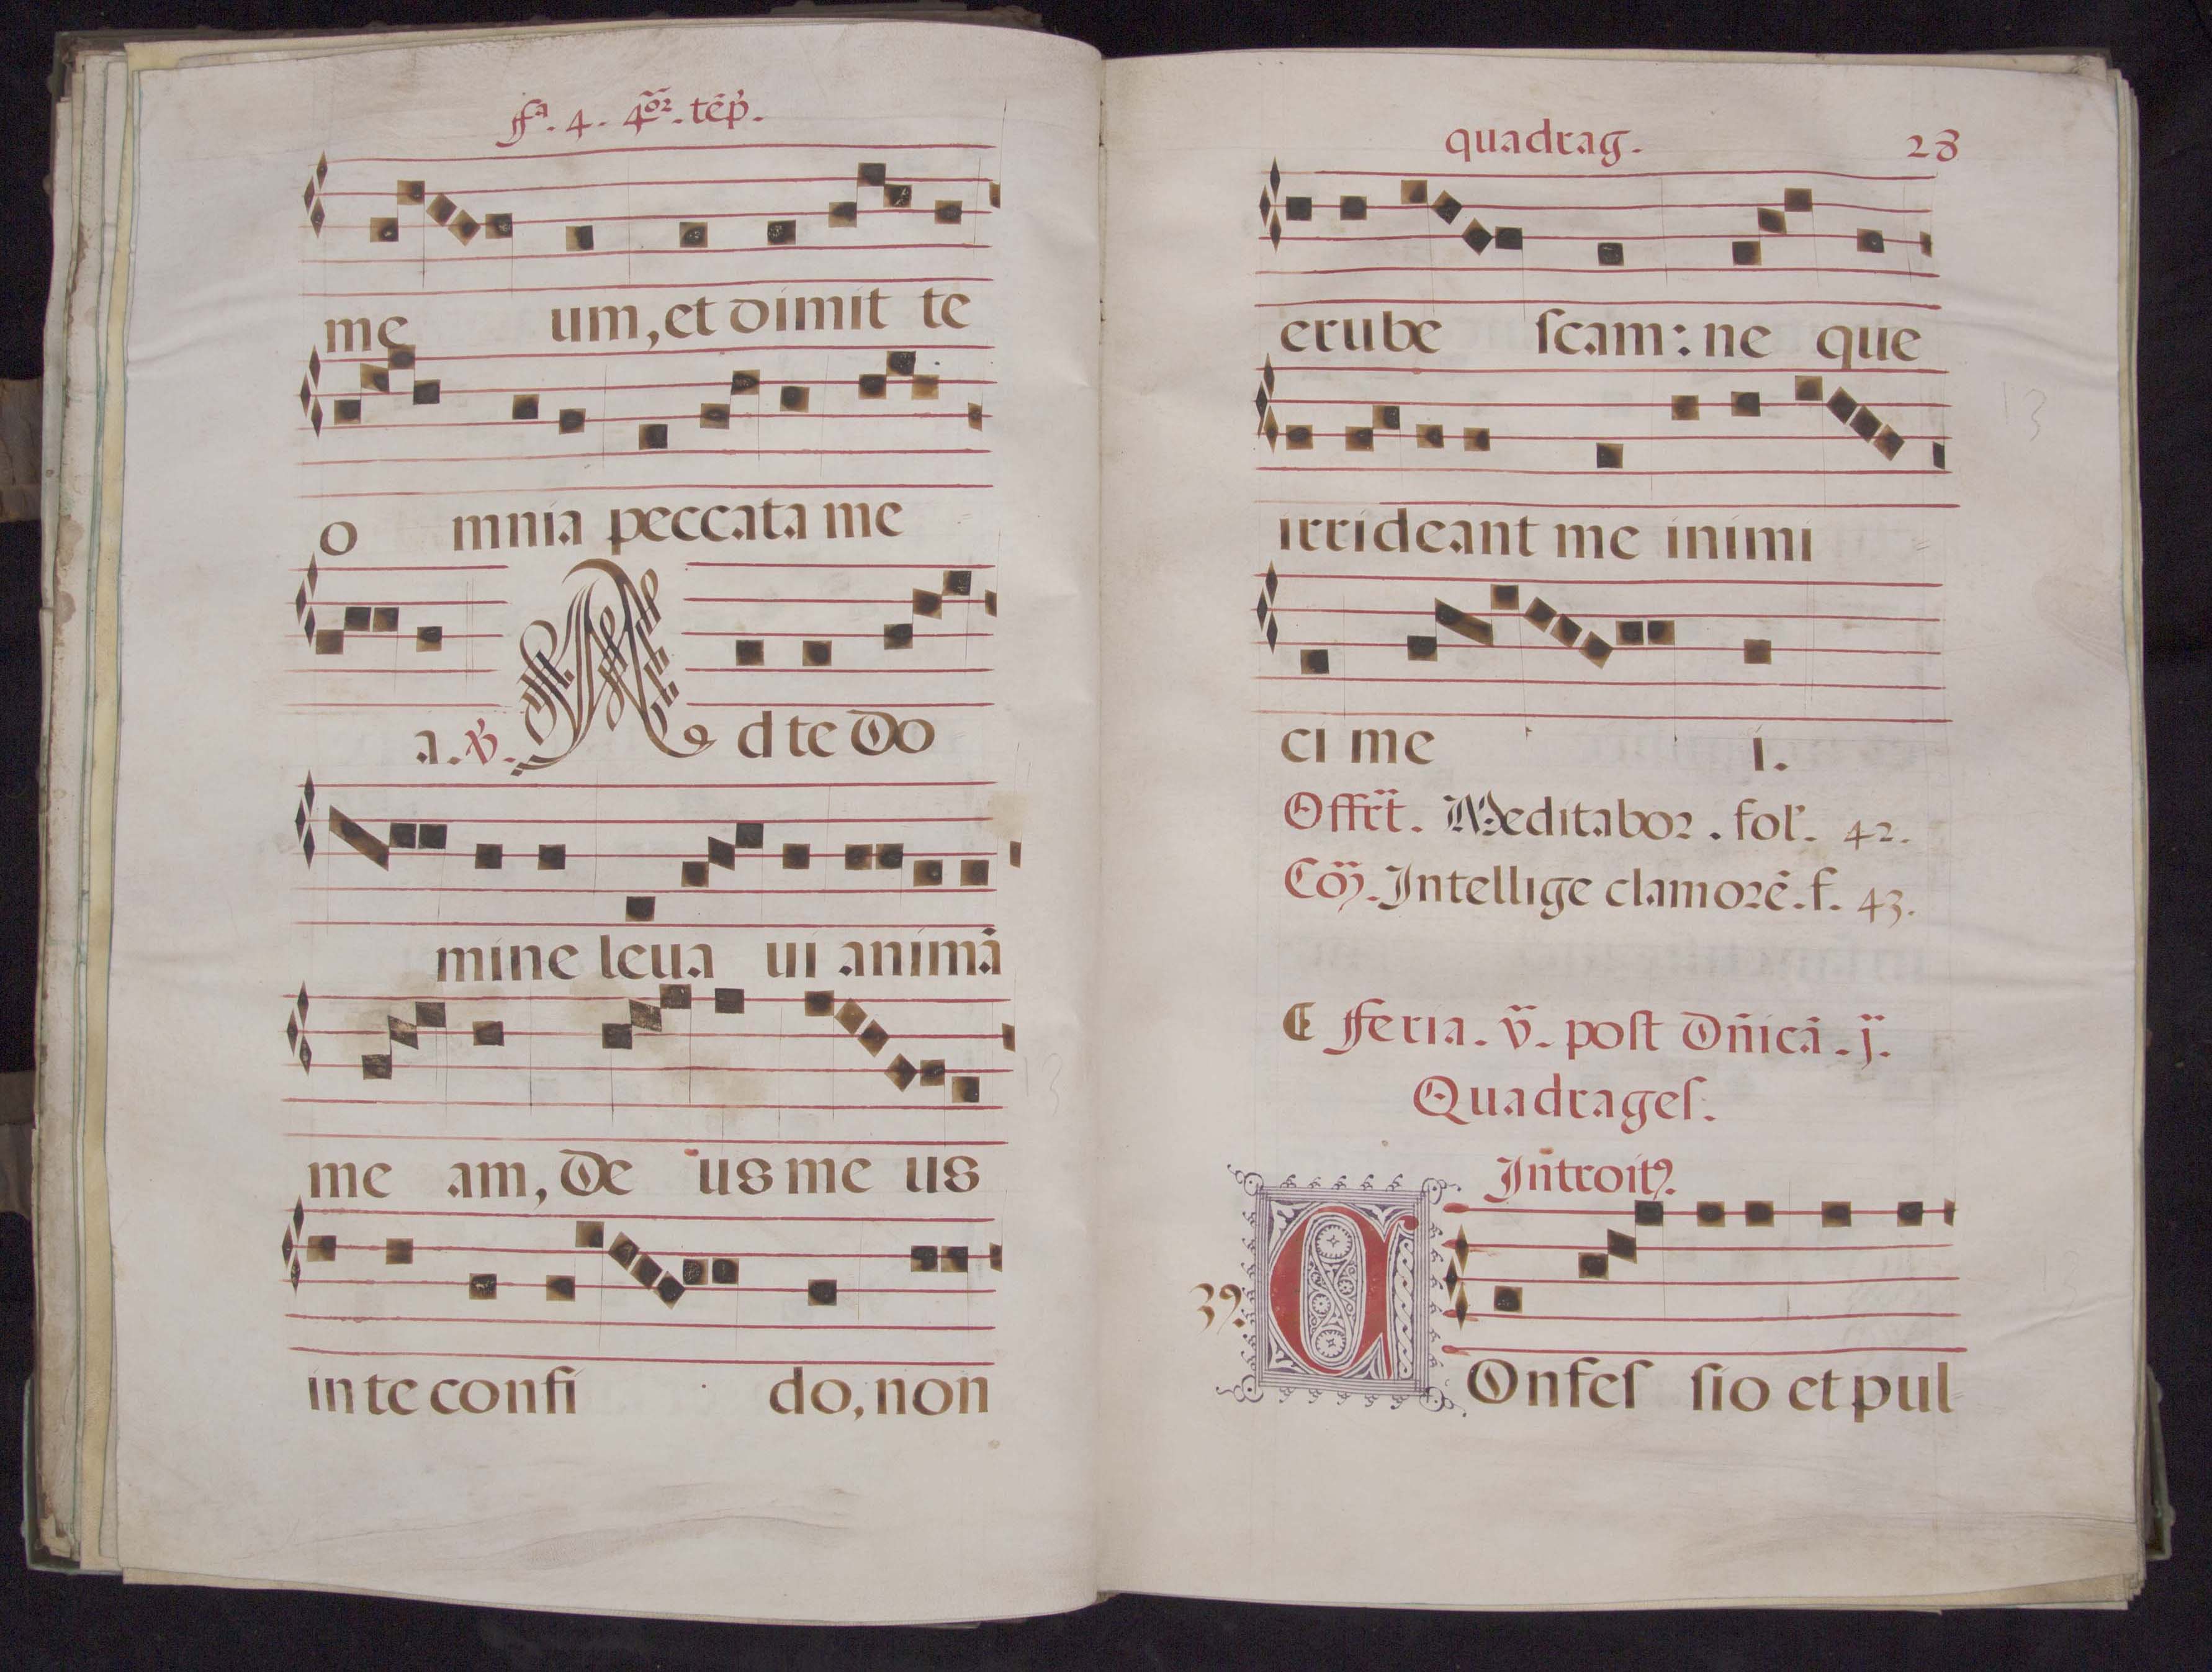 ffª. 4. 4or. tẽp.
me um, et dimit te
o mnia peccata me
a. ℣. A d te Do
mine leua ui animã
me am, De us me us
in te confi do, non
quadrag. 28
erube ſcam: ne que
irrideant me inimi
ci me i.
Offrt̃. Meditabor. fol. 42.
Cõ. Intellige clamorẽ. f. 43.
fferia. v. poſt Dñicã. j.
Quadrageſ.
Introitꝰ.
39.
C Onfeſ ſio et pul